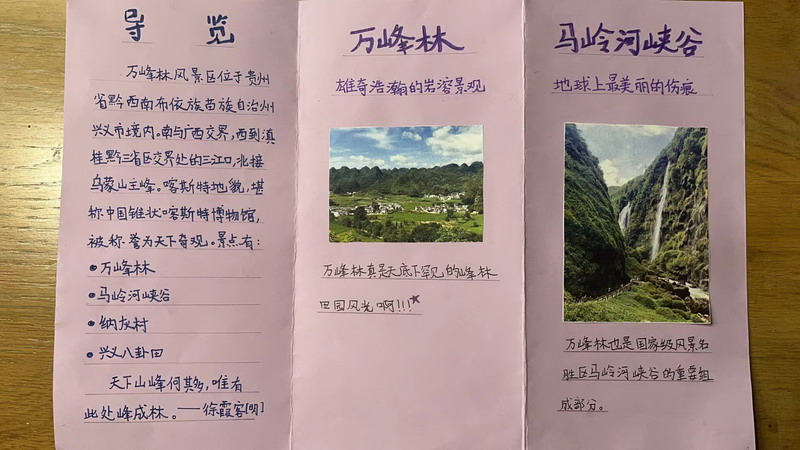 导 览
万峰林风景区位于贵州
省黔西南布依族苗族自治州
兴义市境内。南与广西交界，西到滇
桂黔三省区交界处的三江口，北接
乌蒙山主峰。喀斯特地貌，堪
称中国锥状喀斯特博物馆，
被称誉为天下奇观。景点有：
•万峰林
•马岭河峡谷
•纳灰村
•兴义八卦田
天下山峰何其多，唯有
此处峰成林。——徐霞客[明]
万峰林
雄奇浩瀚的岩溶景观
万峰林真是天底下罕见的峰林
田园风光啊!!!
马岭河峡谷
地球上最美丽的伤痕
万峰林也是国家级风景名
胜区马岭河峡谷的重要组
成部分。